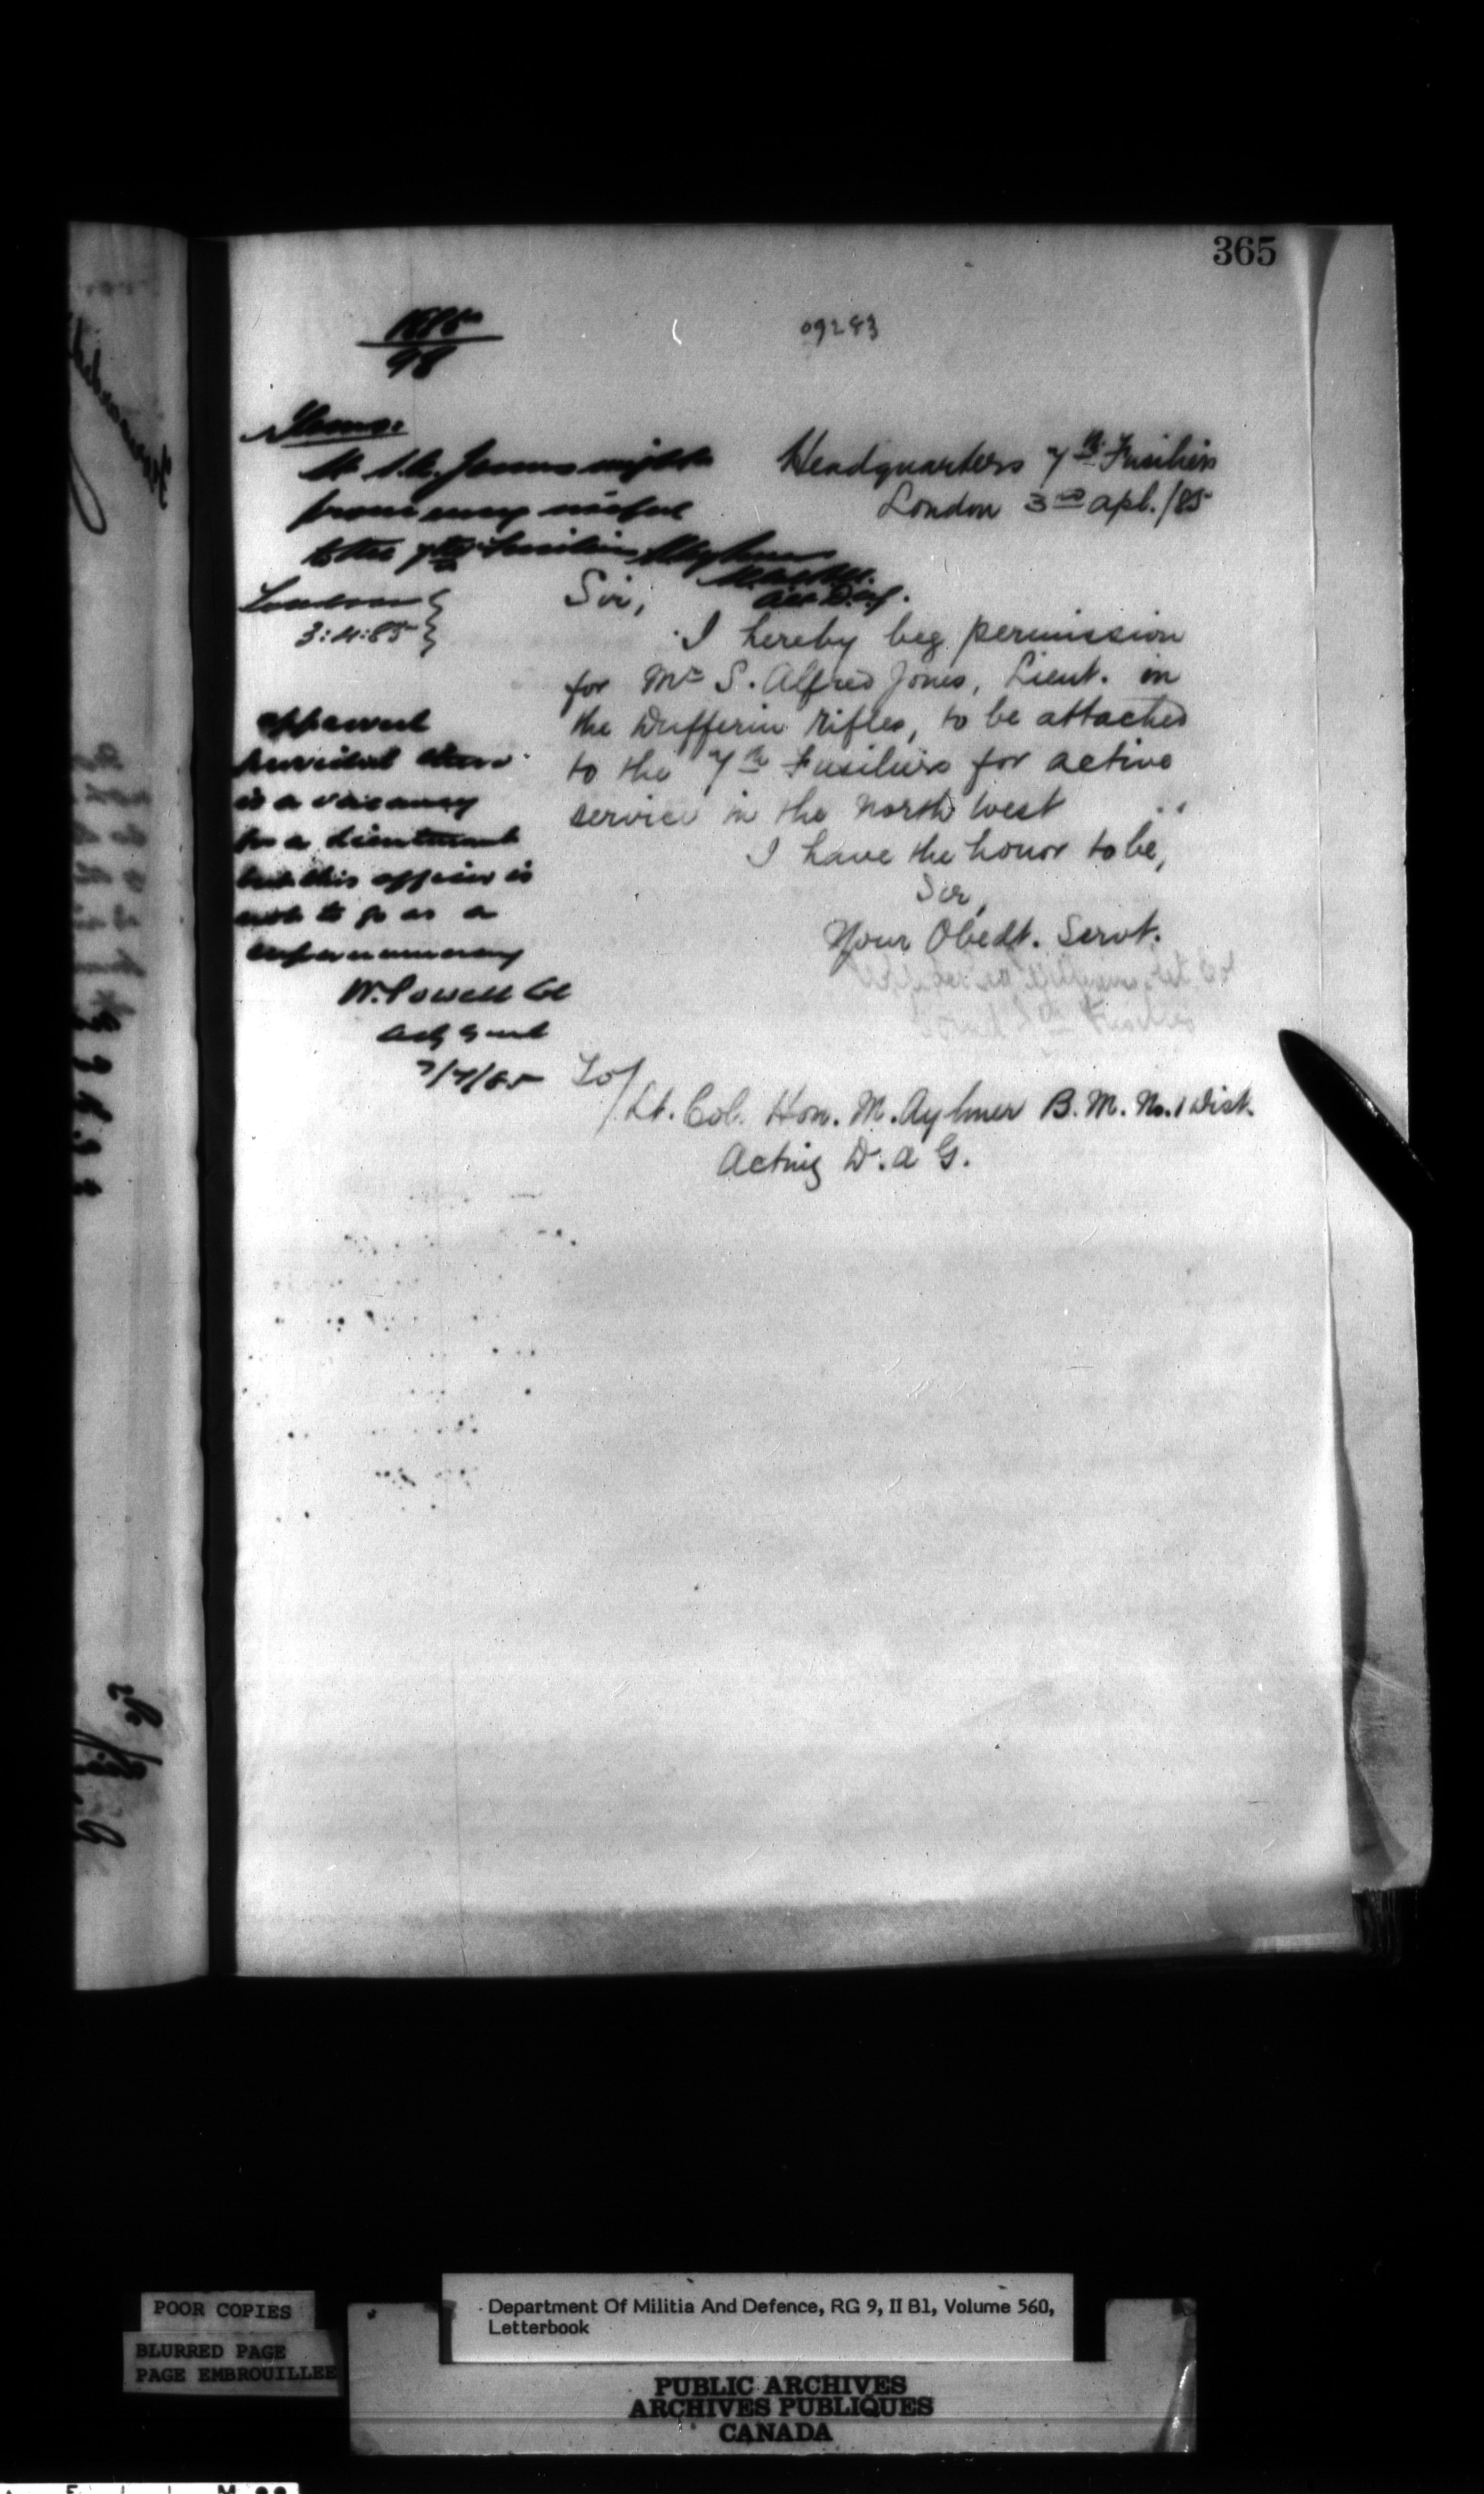 365
09283
98
Headquarters 7th Fusiliers
London 3rd Apl. /85
Lt. S. A. Jones might
prove very useful
to the 7th Fusiliers Aylmer
Act D.A.G.
London
3:4:85
Sir,
I hereby beg permission
for Mr S. Alfred Jones, Lieut. in
the Dufferin Rifles, to be attached
to the 7th Fusiliers for active
service in the North West
I have the honor to be,
Sir,
Your Obedt. Servt.
Lt Col
7th Fusiliers
approved
provided there
is a vacancy
for a Lieutenant
but this officer is
not to go as a
supernumerary
W. Powell Col
Adj Genl
7/4/85
To/
Lt. Col. Hon. M. Aylmer B. M. No. 1 Dist.
Acting D. A G.
POOR COPIES
BLURRED PAGE
PAGE EMBROUILLEE
Department Of Militia And Defence, RG 9, II B1, Volume 560,
Letterbook
PUBLIC ARCHIVES
ARCHIVES PUBLIQUES
CANADA